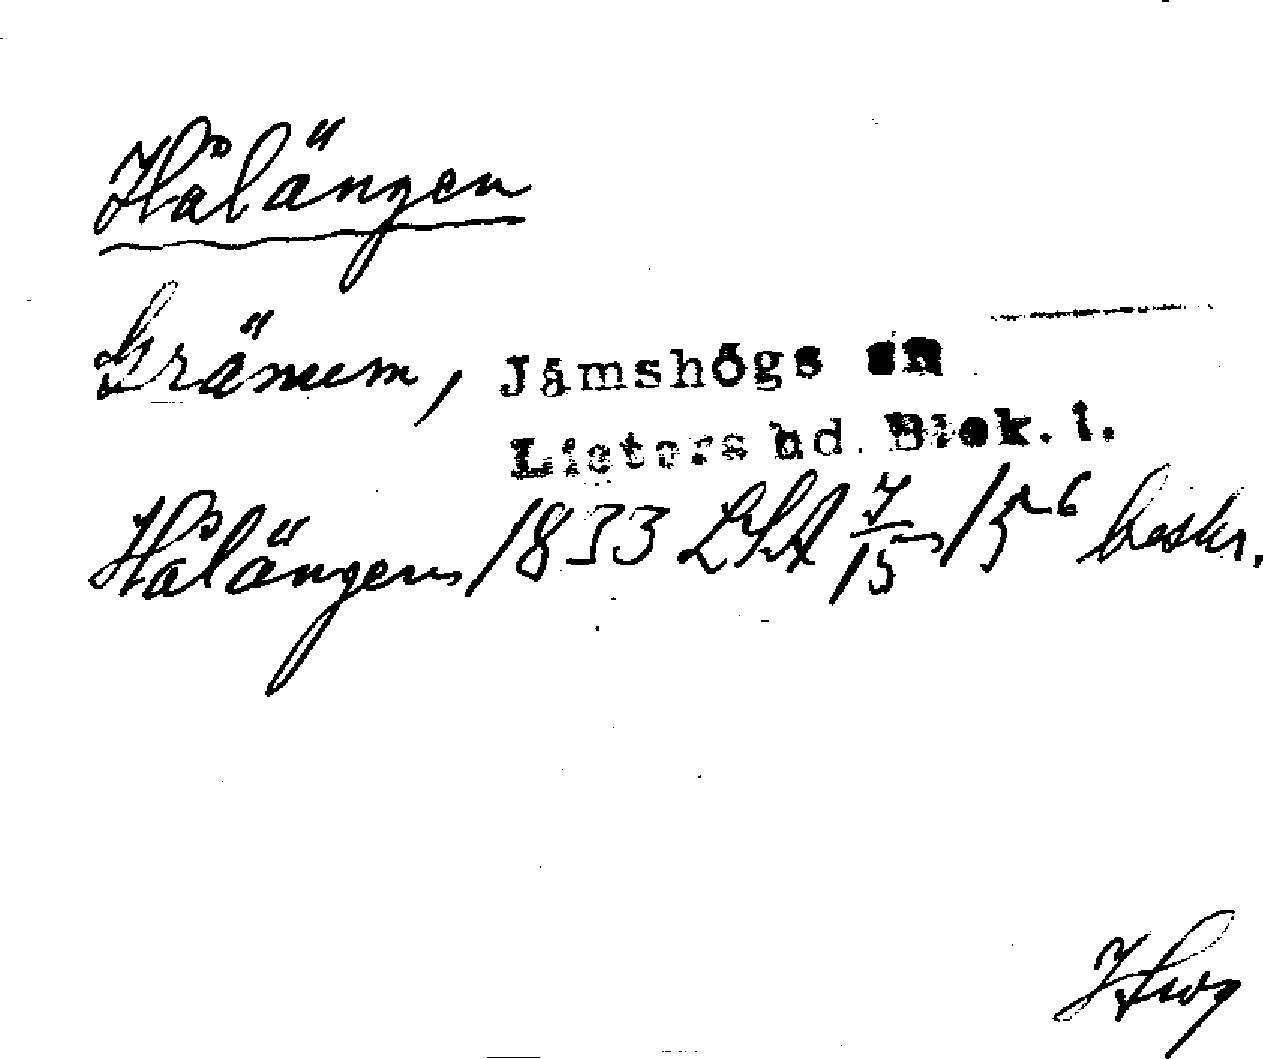 Hålängen
Gränum, Jämshögs sn
Listers hd. Blek. l.
Hålängen 1833 LSA 7/15 / 15-6 beskr.